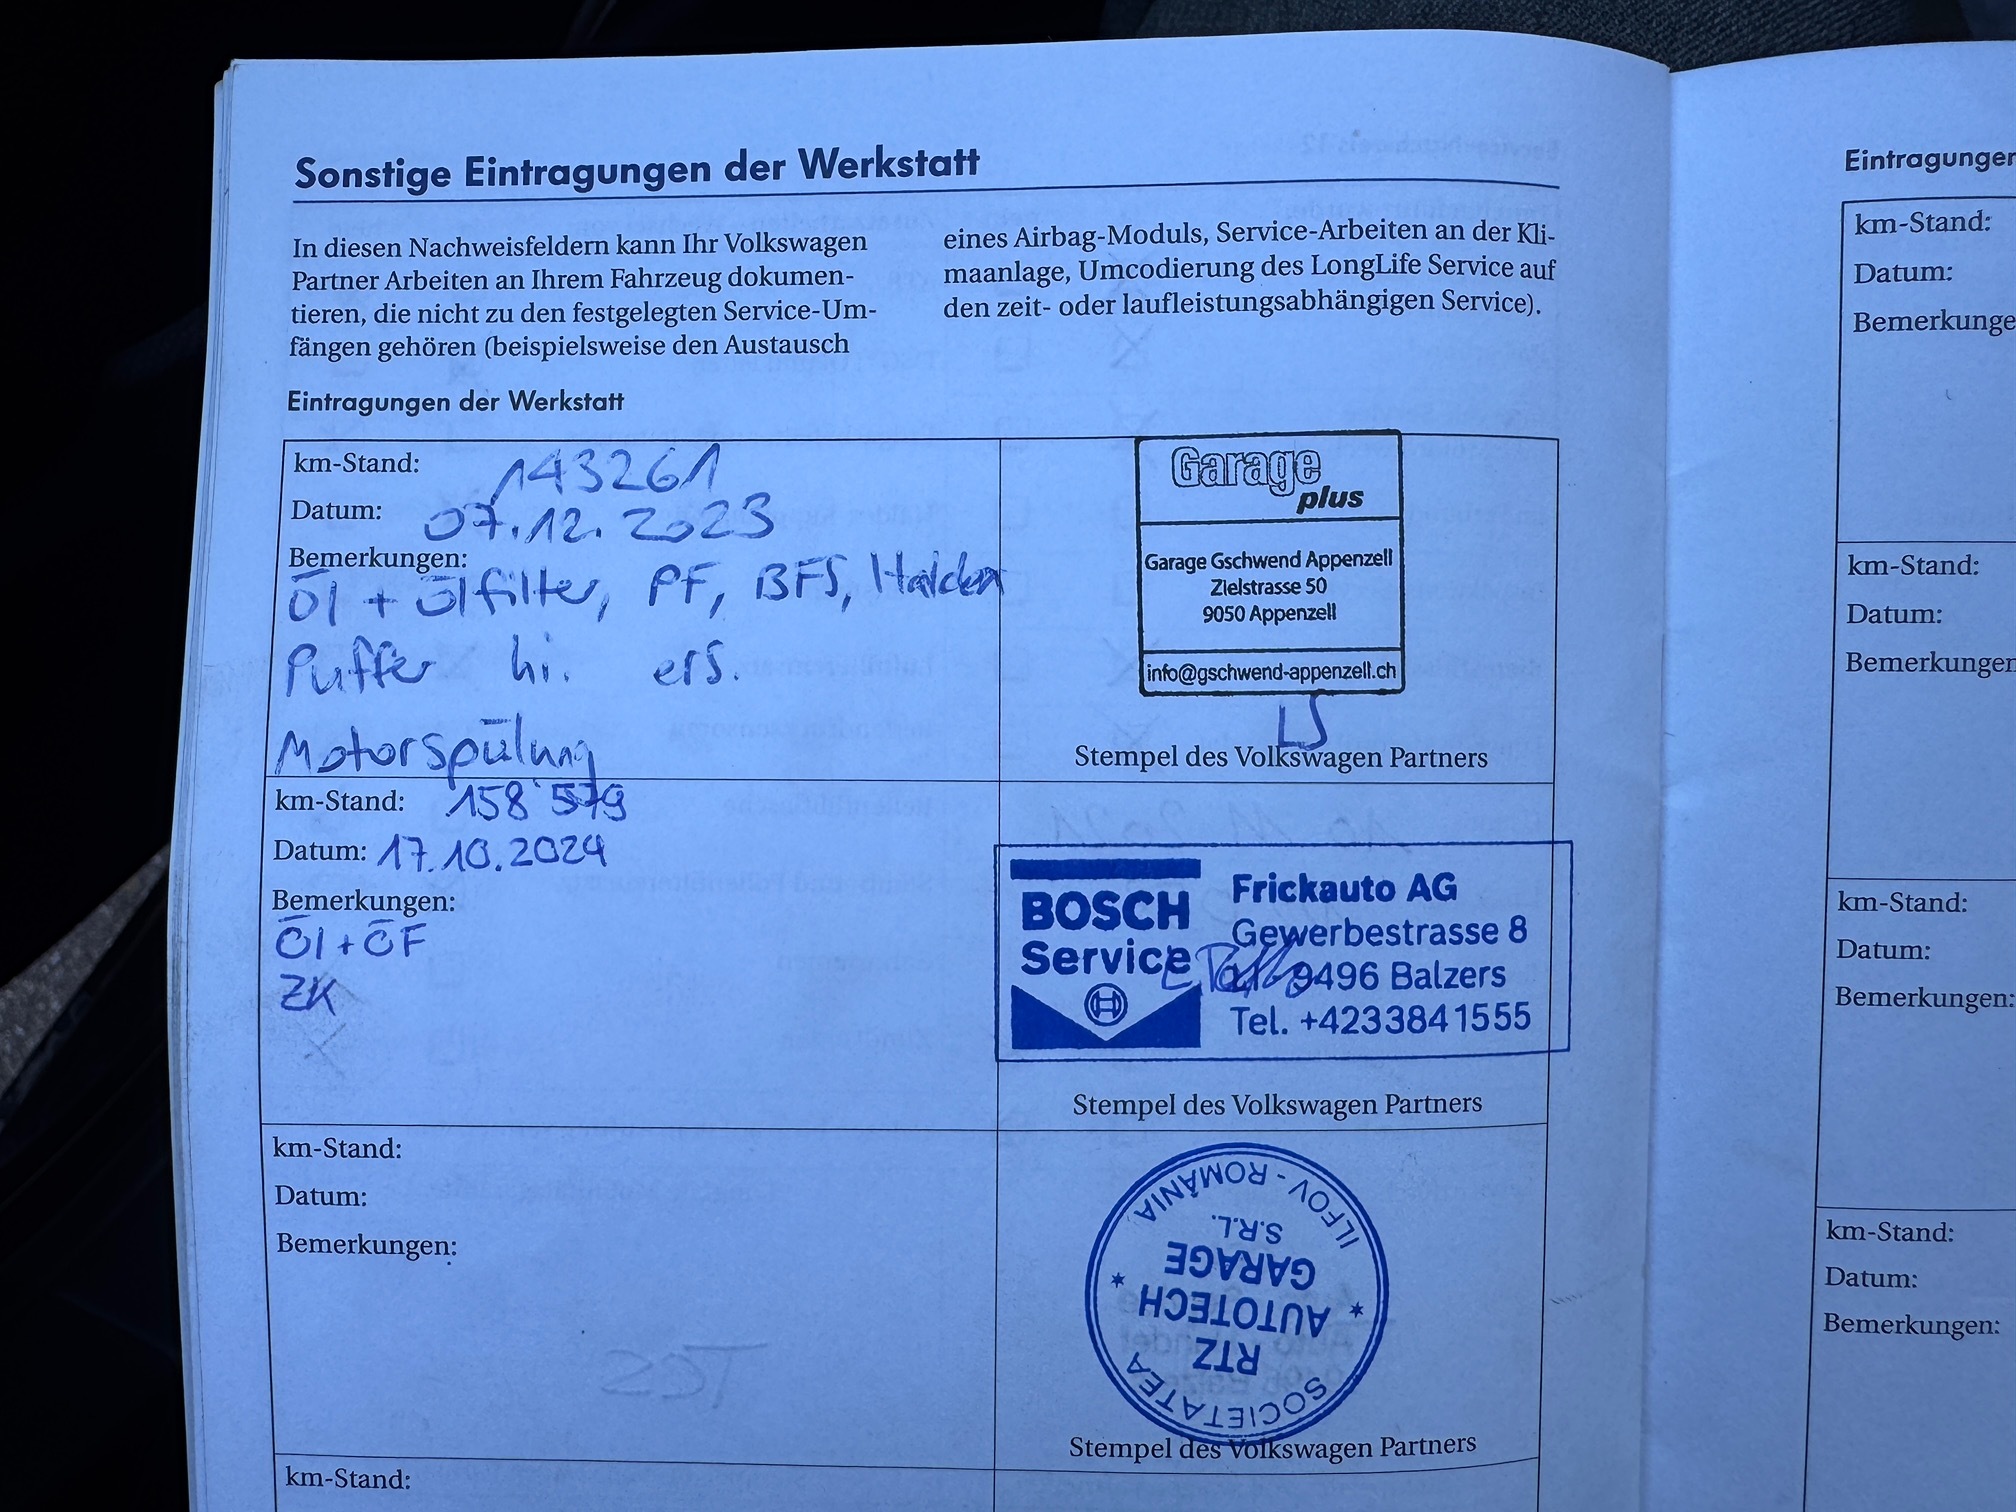 Sonstige Eintragungen der Werkstatt
In diesen Nachweisfeldern kann Ihr Volkswagen
Partner Arbeiten an Ihrem Fahrzeug dokumen-
tieren, die nicht zu den festgelegten Service-Um-
fängen gehören (beispielsweise den Austausch
eines Airbag-Moduls, Service-Arbeiten an der Kli-
maanlage, Umcodierung des LongLife Service auf
den zeit- oder laufleistungsabhängigen Service).
Eintragungen der Werkstatt
km-Stand: 143261
Datum: 07.12.2023
Bemerkungen:
Öl + Ölfilter, PF, BFS,
Puffer hi. ers.
Motorspülung
Garage
plus
Garage Gschwend Appenzell
Zielstrasse 50
9050 Appenzell
info@gschwend-appenzell.ch
LS
Stempel des Volkswagen Partners
km-Stand: 158'579
Datum: 17.10.2024
Bemerkungen:
Öl + ÖF
ZK
BOSCH
Service
Frickauto AG
Gewerbestrasse 8
9496 Balzers
Tel. +4233841555
Stempel des Volkswagen Partners
km-Stand:
Datum:
Bemerkungen:
SOCIETATEA
RTZ
AUTOTECH
GARAGE
S.R.L.
ILFOV - ROMÂNIA
Stempel des Volkswagen Partners
km-Stand:
Eintragungen
km-Stand:
Datum:
Bemerkunge
km-Stand:
Datum:
Bemerkungen
km-Stand:
Datum:
Bemerkungen:
km-Stand:
Datum:
Bemerkungen: